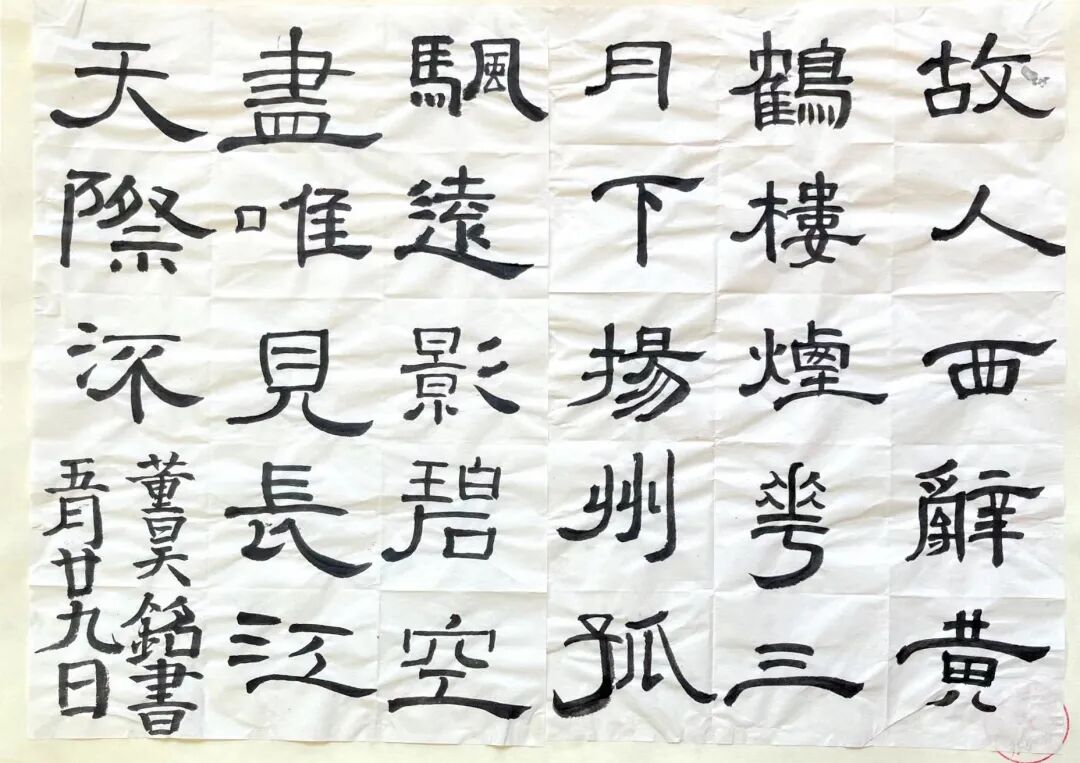 故人西辭黄
鶴樓煙華三
月下揚州孤
颿遠影碧空
盡唯見長江
天際㳅
董昊銘書
五月廿九日